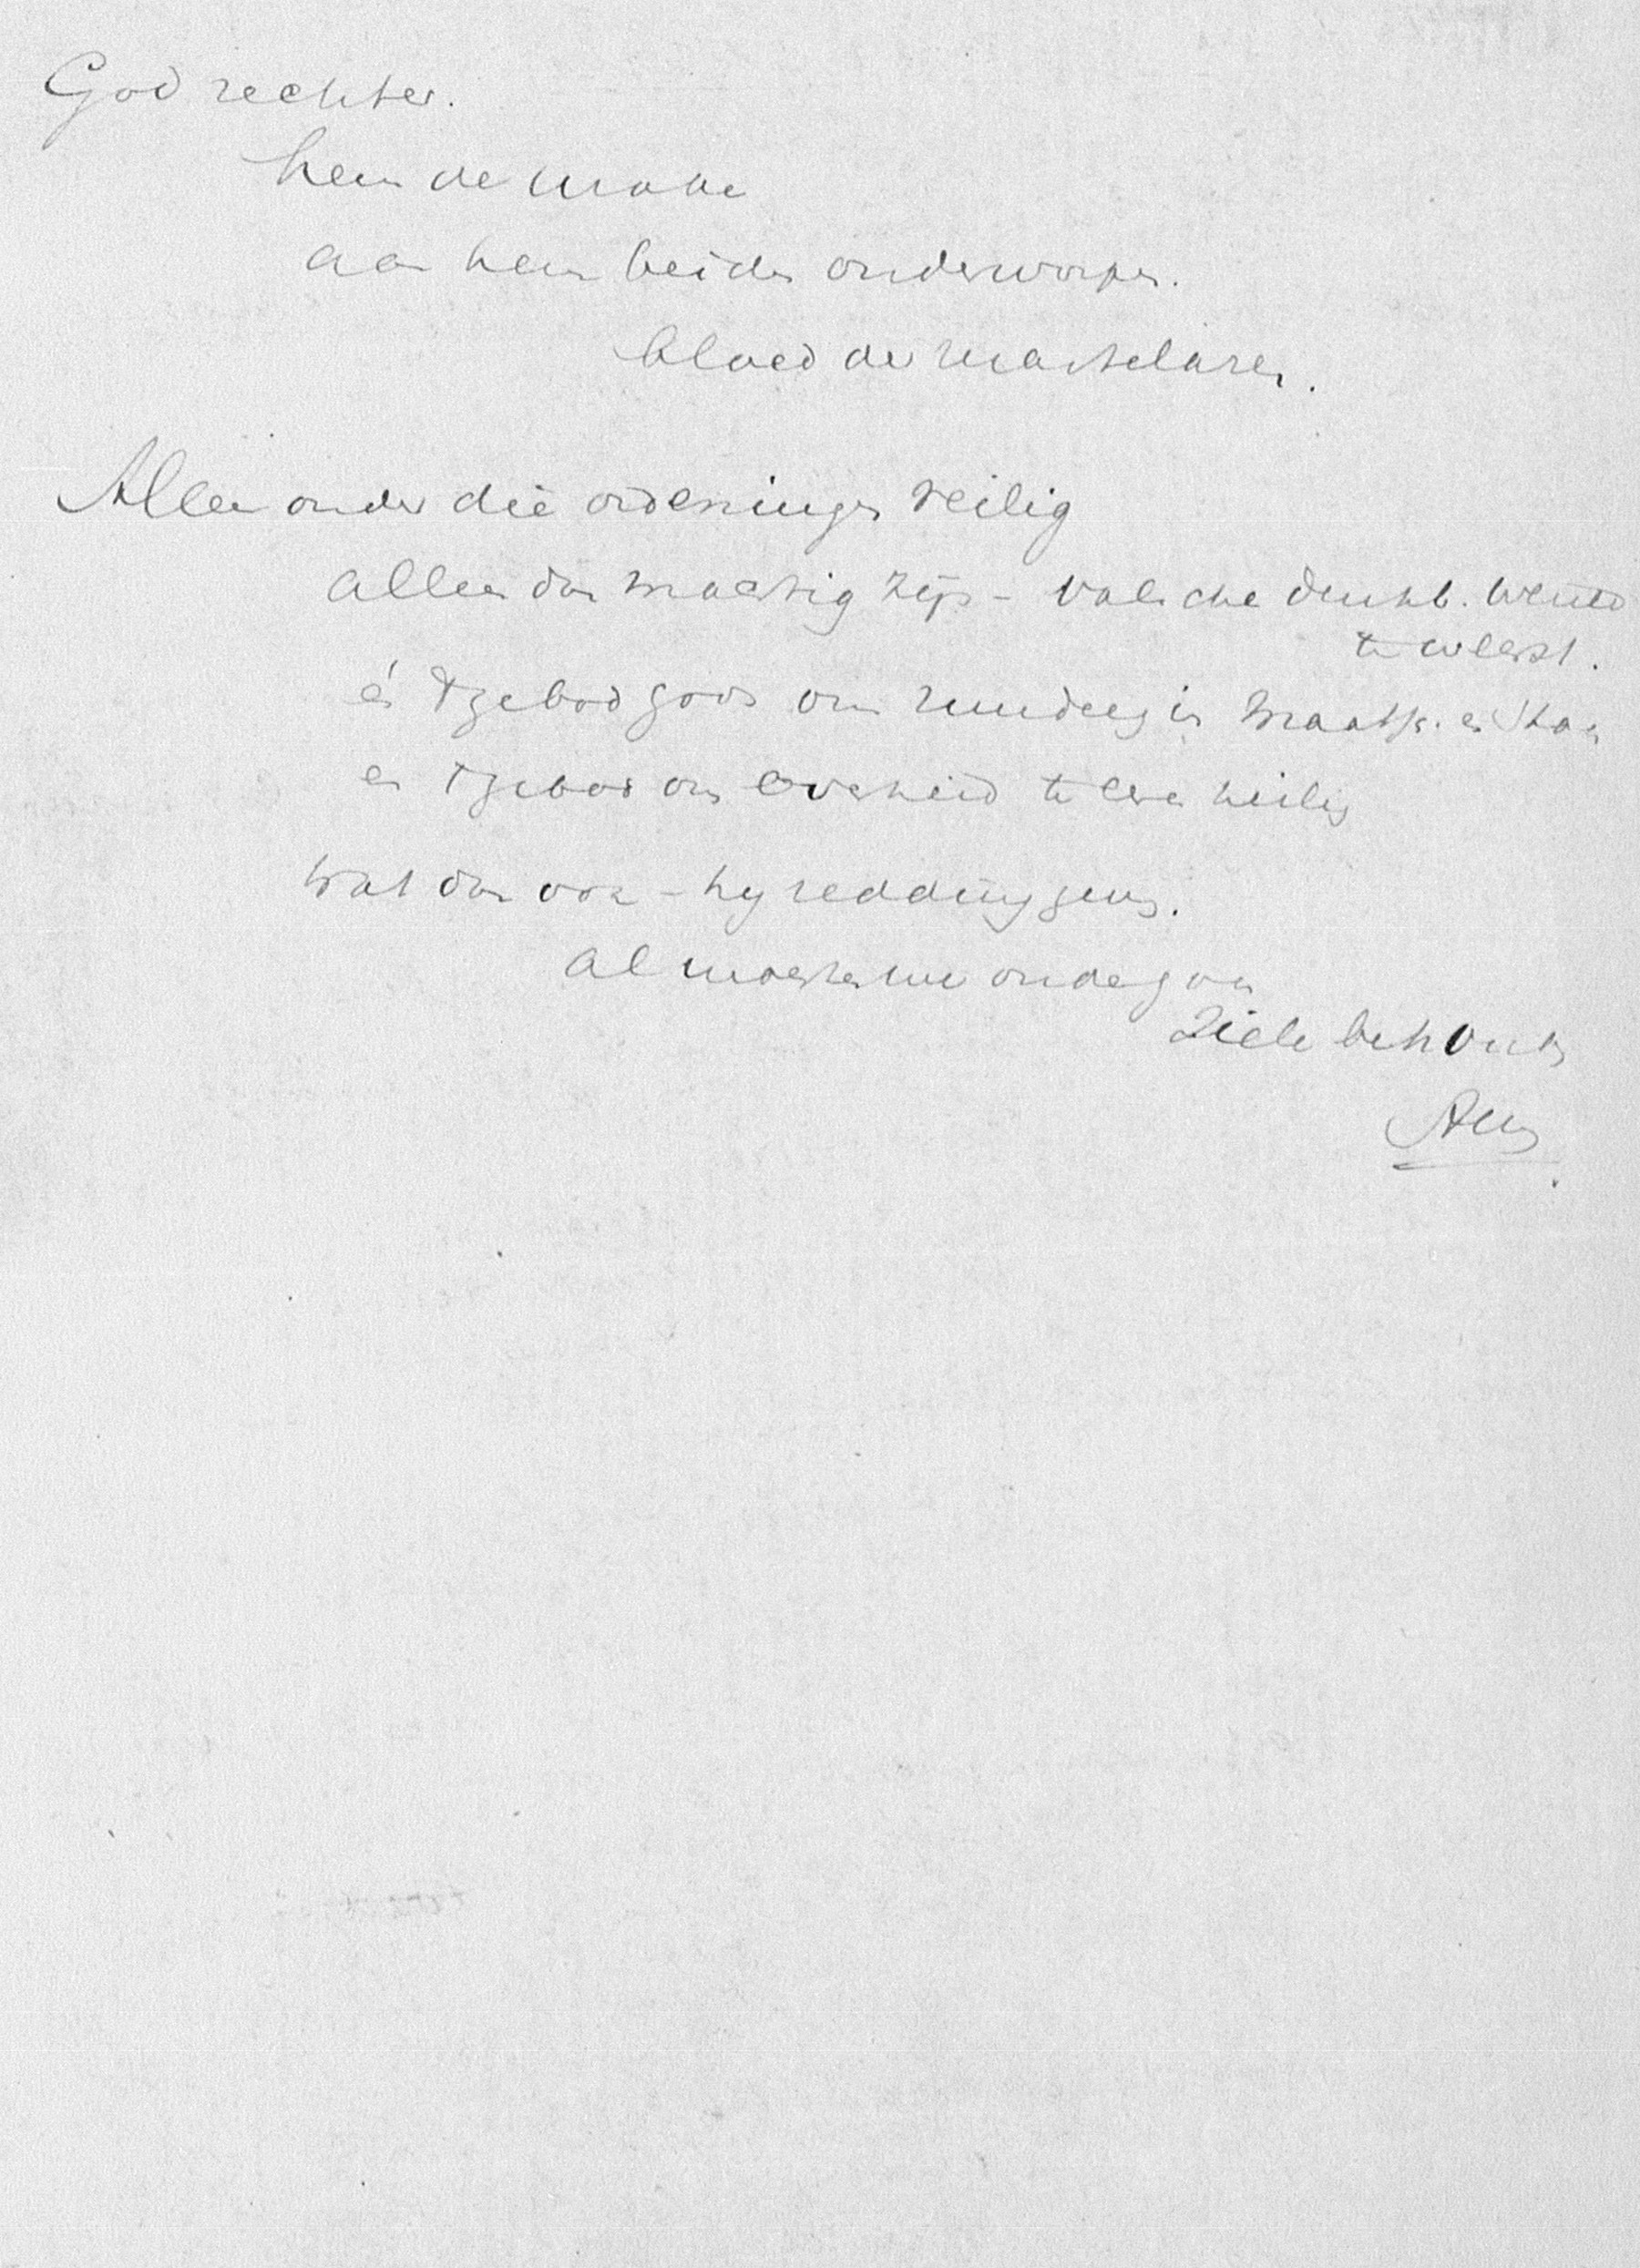 God rechter.
hem de wrake
aan hem beiden onderworpen.
bloed der martelaren.
Alleen onder die ordeningen veilig
alleen dan machtig zijn - valsche denkb.
te
en 't gebod gods om in Maatsch. en Staa
en 't gebod om Overheid te eeren heilig
Wat dan ook - hij redding geev.
al moesten we ondergaan
Ziele behoud
Am